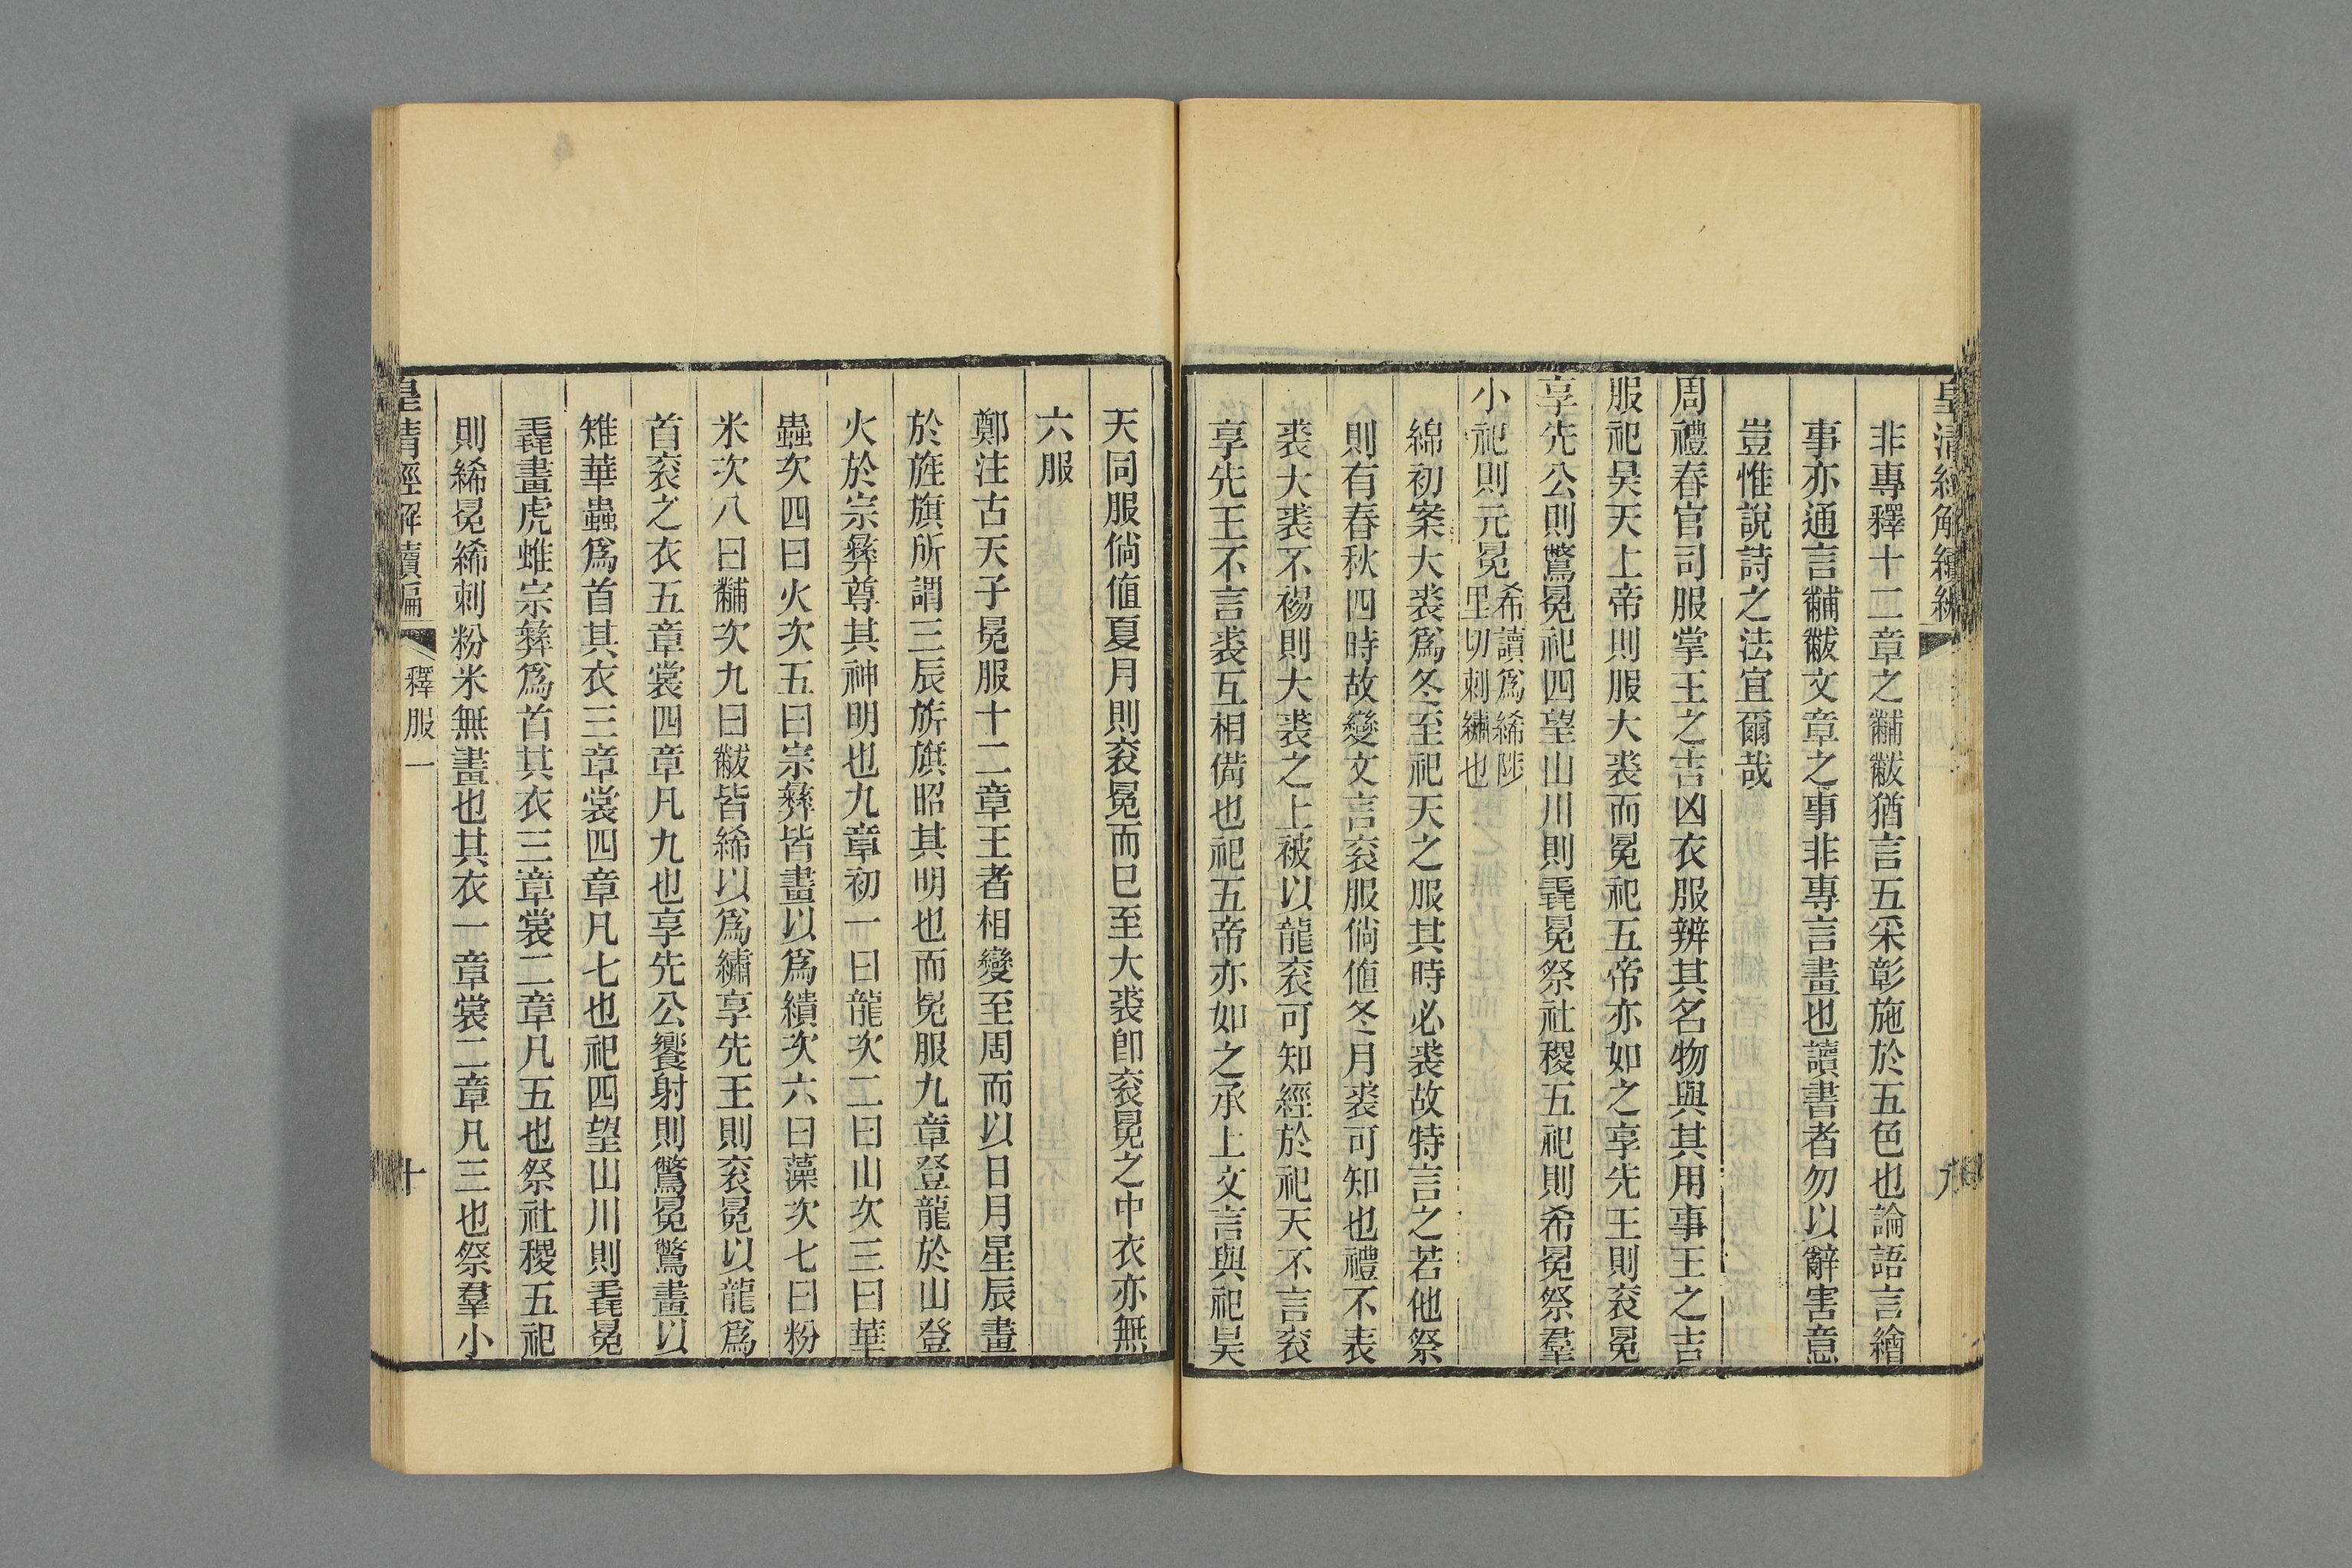 皇清經解續編
九
非專釋十二章之黼黻猶言五采彰施於五色也論語言繪
事亦通言黼黻文章之事非專言畫也讀書者勿以辭害意
豈惟說詩之法宜爾哉
周禮春官司服掌王之吉凶衣服辨其名物與其用事王之吉
服祀昊天上帝則服大裘而冕祀五帝亦如之享先王則袞冕
享先公則鷩冕祀四望山川則毳冕祭社稷五祀則希冕祭羣
小祀則元冕
希讀爲絺陟
里切刺繡也
綿初案大裘爲冬至祀天之服其時必裘故特言之若他祭
則有春秋四時故變文言袞服倘値冬月裘可知也禮不表
裘大裘不裼則大裘之上被以龍袞可知經於祀天不言袞
享先王不言裘互相備也祀五帝亦如之承上文言與祀昊
天同服倘値夏月則袞冕而巳至大裘卽袞冕之中衣亦無
六服
鄭注古天子冕服十二章王者相變至周而以日月星辰畫
於旌旗所謂三辰旂旗昭其明也而冕服九章登龍於山登
火於宗彝尊其神明也九章初一曰龍次二曰山次三曰華
蟲次四曰火次五曰宗彝皆畫以爲繢次六曰藻次七曰粉
米次八曰黼次九曰黻皆絺以爲繡享先王則袞冕以龍爲
首袞之衣五章裳四章凡九也享先公饗射則鷩冕鷩畫以
雉華蟲爲首其衣三章裳四章凡七也祀四望山川則毳冕
毳畫虎蜼宗彝爲首其衣三章裳二章凡五也祭社稷五祀
則絺冕絺刺粉米無畫也其衣一章裳二章凡三也祭羣小
皇清經解續編
釋服一
十